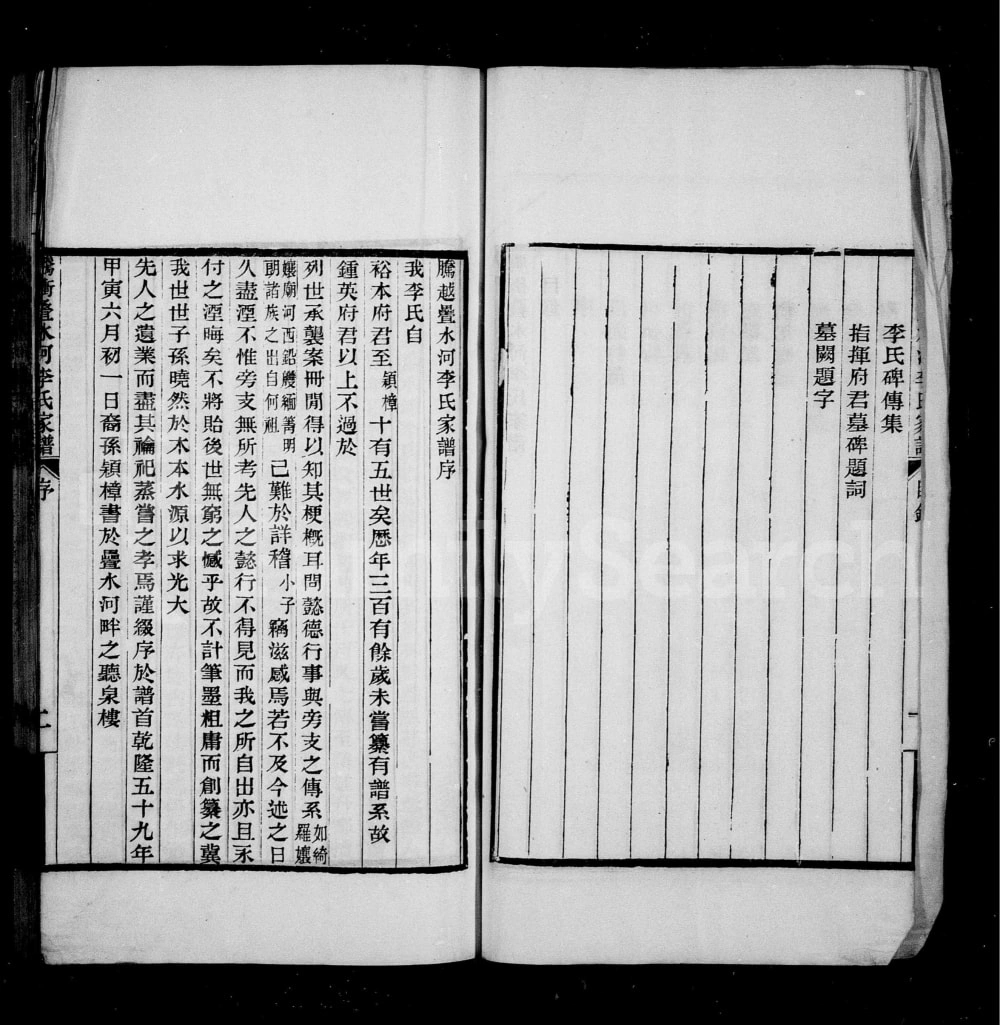 李氏碑傳集
指揮府君墓碑題詞
墓闕題字
騰越疊水河李氏家譜序
我李氏自
裕本府君至穎樟十有五世矣歷年三百有餘歲未嘗纂有譜系故
鍾英府君以上不過於
列世承襲案冊閒得以知其梗概耳問懿德行事與旁支之傳系如綺羅孃
孃廟河西鉛艭緬箐明朝諸族之出自何祖已難於詳稽小子竊滋感焉若不及今述之日
久盡湮不惟旁支無所考先人之懿行不得見而我之所自出亦且永
付之湮晦矣不將貽後世無窮之憾乎故不計筆墨粗庸而創纂之冀
我世世子孫曉然於木本水源以求光大
先人之遺業而盡其禴祀蒸嘗之孝焉謹綴序於譜首乾隆五十九年
甲寅六月初一日裔孫穎樟書於疊水河畔之聽泉樓
騰衝疊水河李氏家譜 序 二